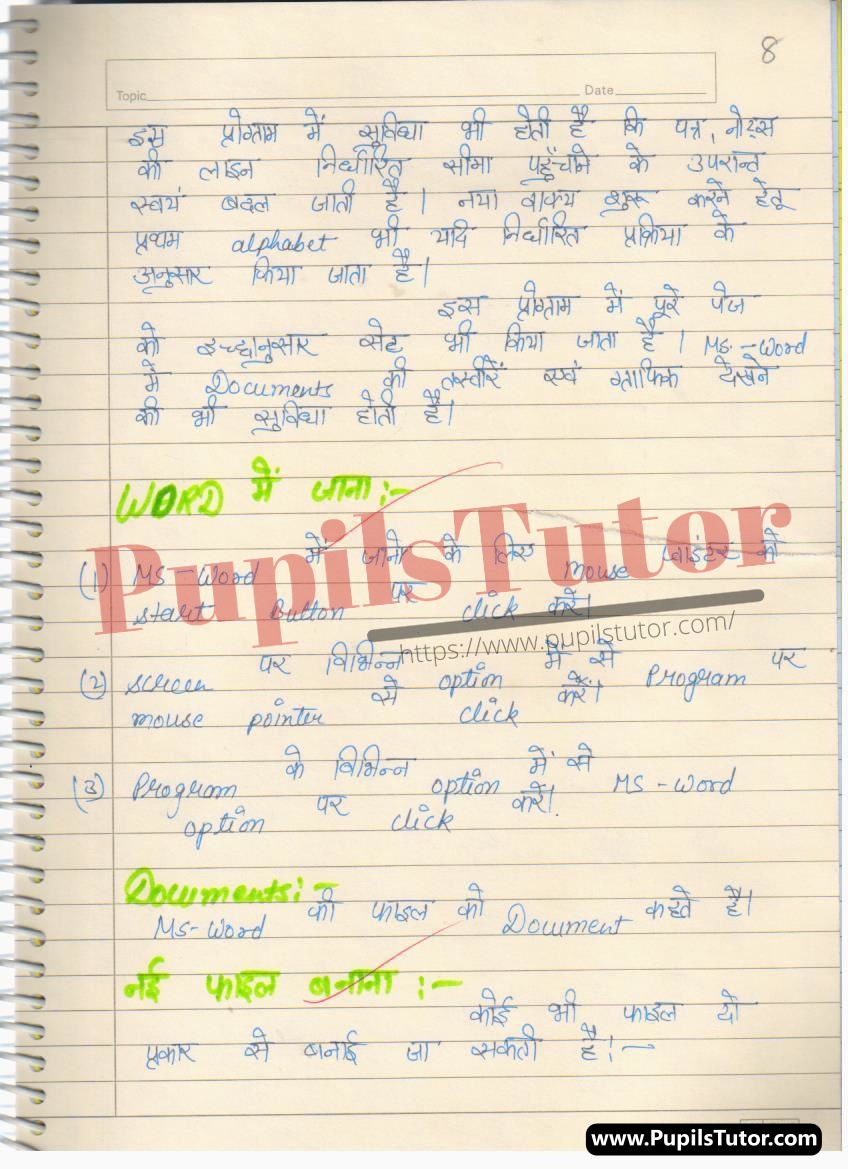 8
Topic Date
इस प्रोग्राम में सुविधा भी होती है कि पत्र, नोट्स
की लाइन निर्धारित सीमा पहुँचाने के उपरान्त
स्वयं बदल जाती है। नया वाक्य शुरू करने हेतू
प्रथम alphabet भी यदि निर्धारित प्रक्रिया के
अनुसार किया जाता है।
इस प्रोग्राम में पूरे पेज
को इच्छानुसार सेट भी किया जाता है। MS.-Word
में Documents की तस्वीरें एवं ग्राफिक देखने
की भी सुविधा होती है।
WORD में जाना :-
(1) MS-Word में जाने के लिए mouse प्वाइंटर को
start Button पर click करें।
(2) screen पर विभिन्न option में से Program पर
mouse pointer से click करें।
(3) Program के विभिन्न option में से MS-Word
option पर click करें।
Documents:-
MS-Word की फाइल को Document कहते है।
नई फाइल बनाना :-
कोई भी फाइल दो
प्रकार से बनाई जा सकती है।-
PupilsTutor
https://www.pupilstutor.com/
www.PupilsTutor.com